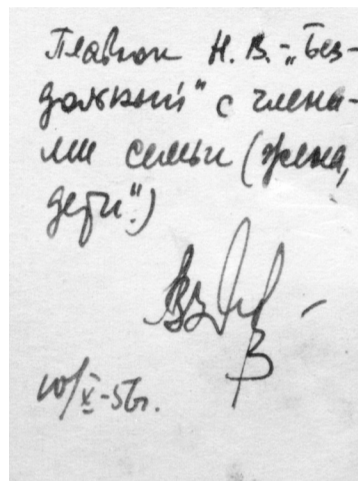 Плавюк Н. В. - „Без-
дольный" с члена-
ми семьи (жена,
дети".)
10/X-56г.